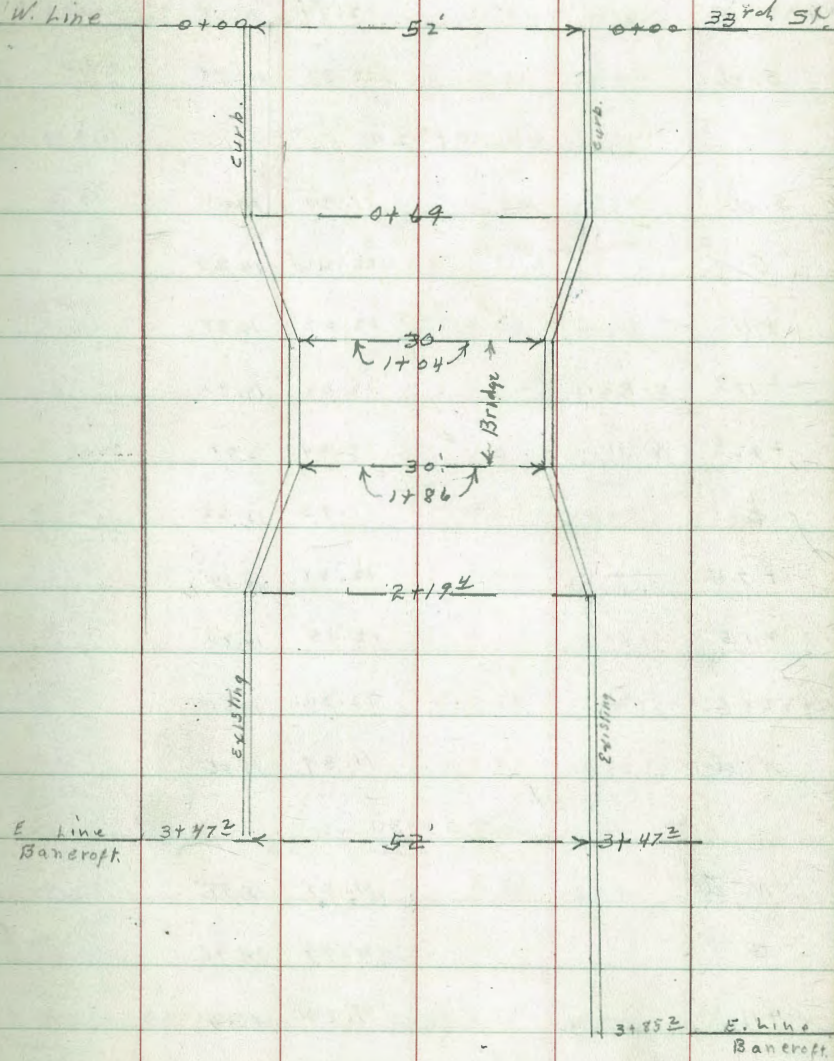 W. Line 0+00 52' 0+00 33rd St.
curb. curb.
0+69
30'
1+04
Bridge
30'
1+86
2+19⁴
Existing Existing
E Line 3+47² 52' 3+47²
Bancroft.
3+85² E. Line
Bancroft